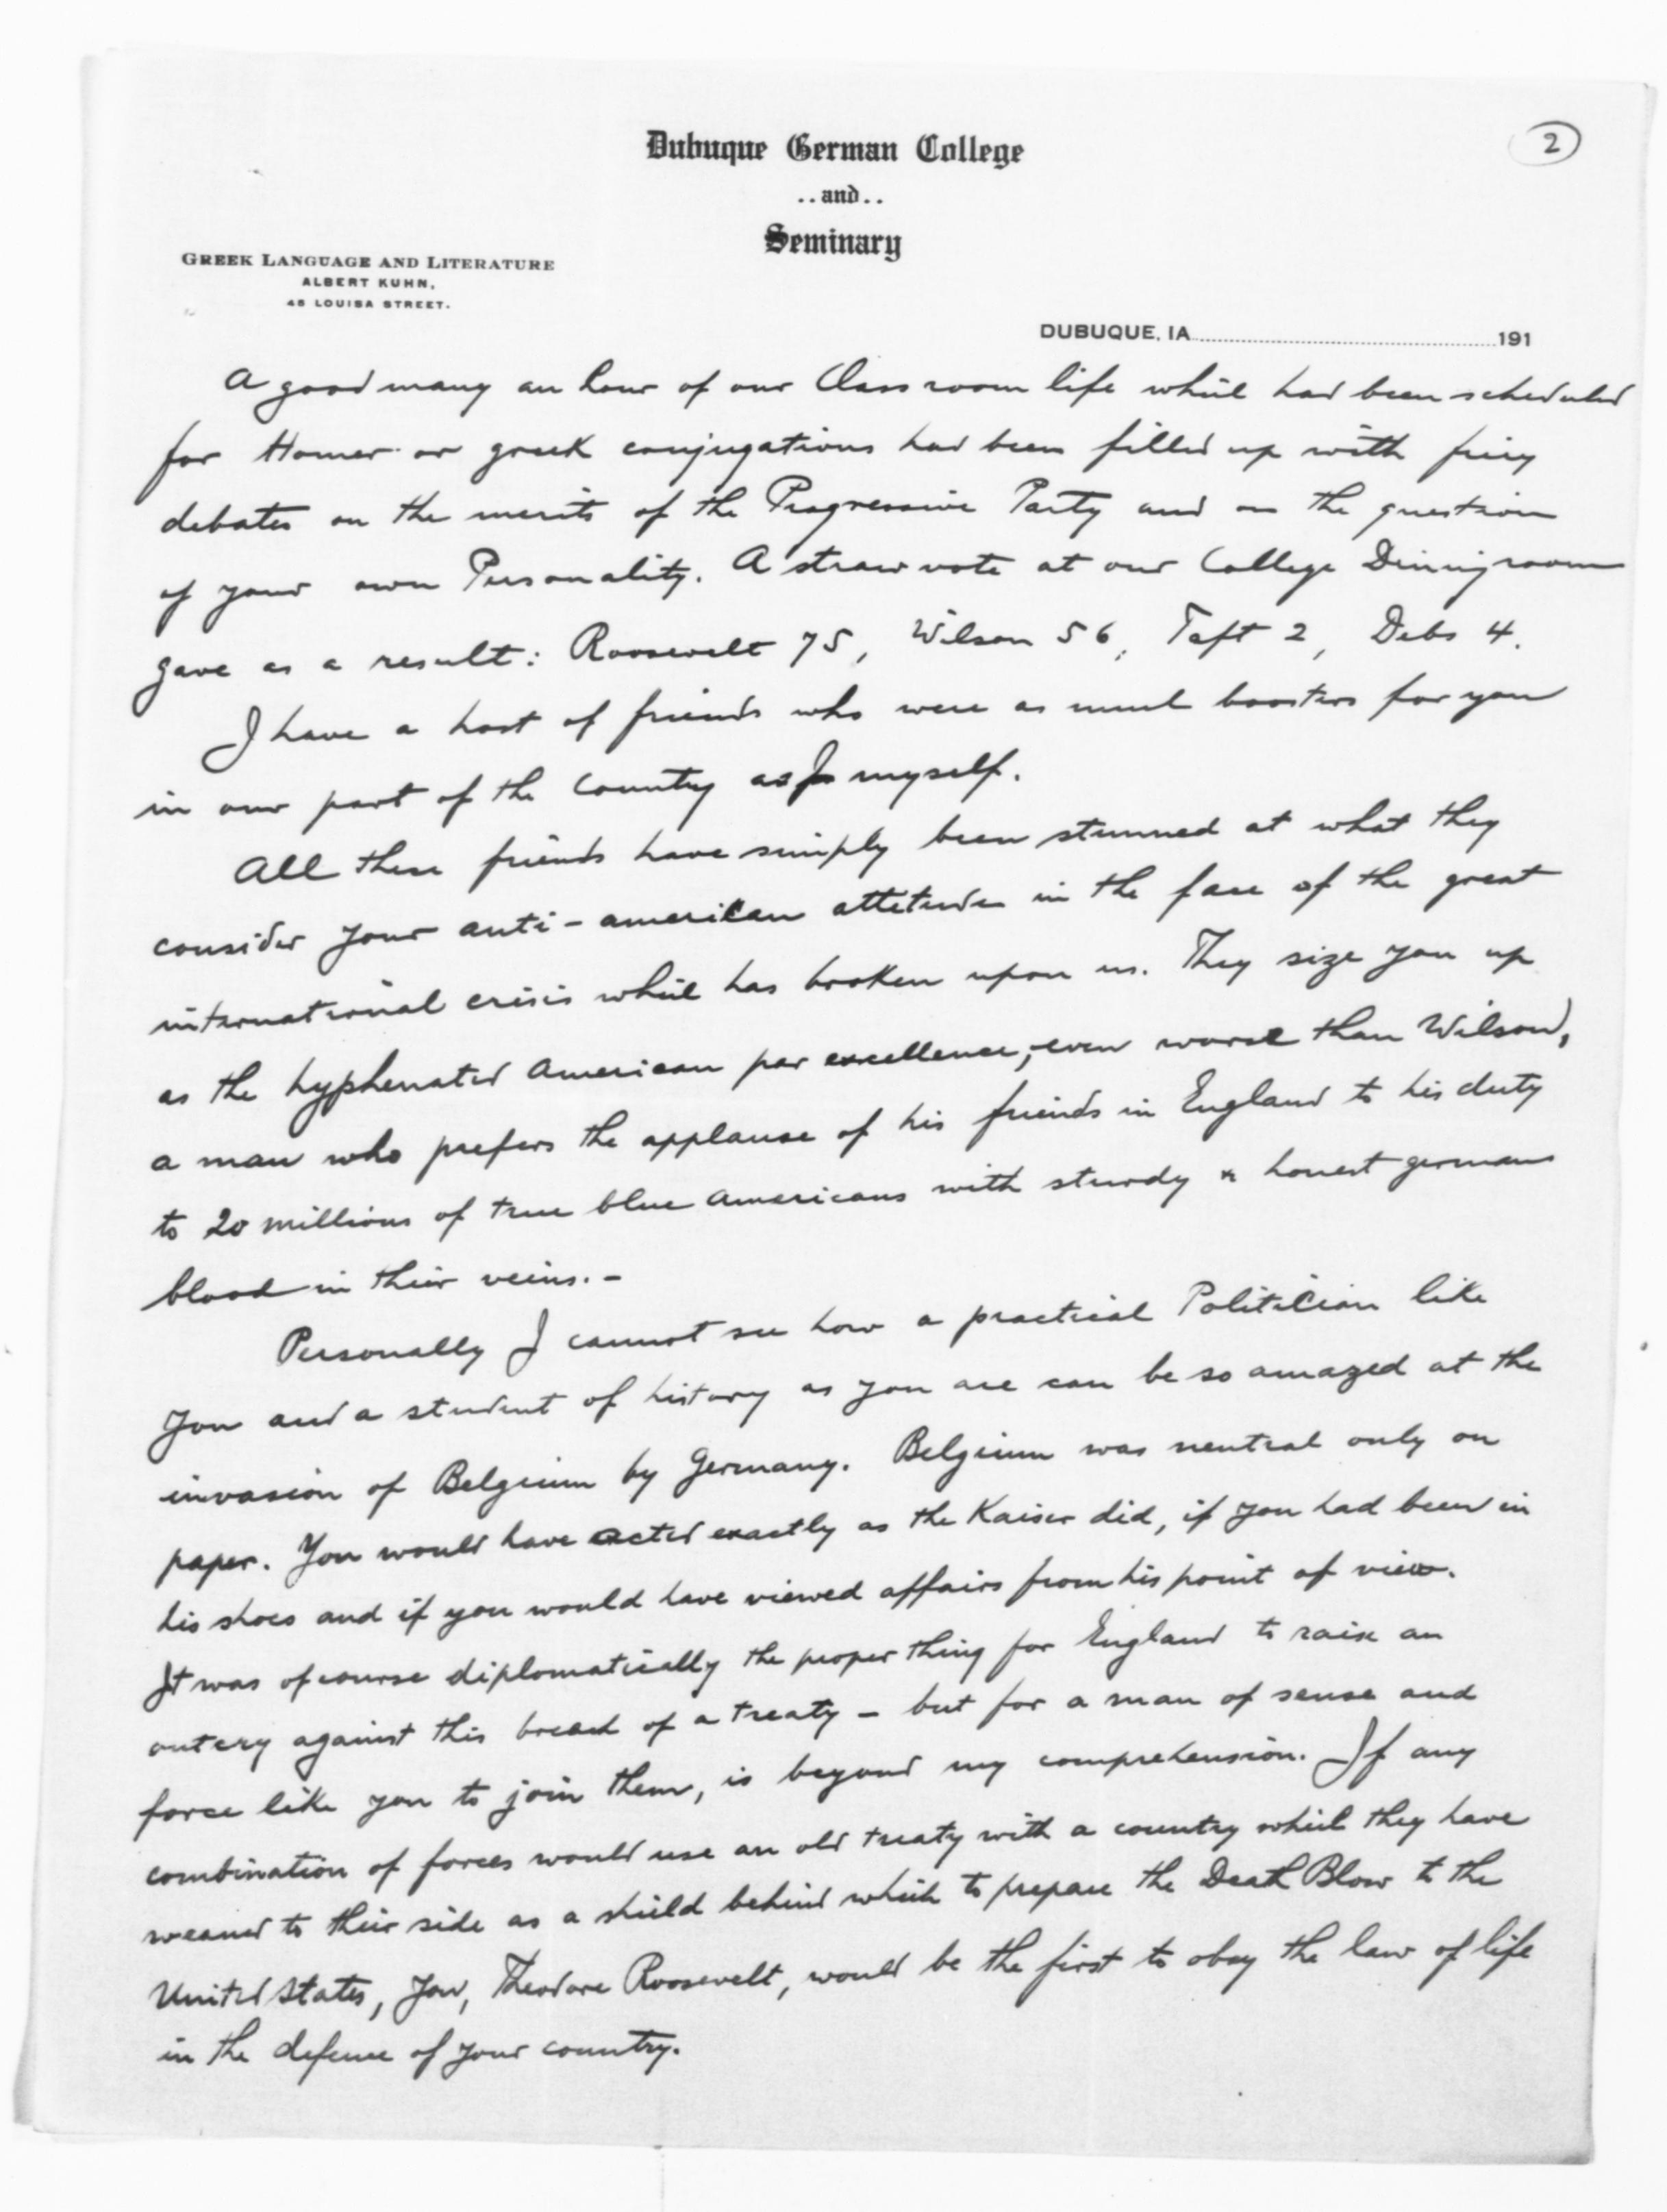 Dubuque German College
2
..and..
Seminary
GREEK LANGUAGE AND LITERATURE
ALBERT KUHN,
46 LOUISA STREET.
DUBUQUE, IA. 191
A good many an hour of our Class room life which had been scheduled
for Homer or greek conjugations had been filled up with firy
debates on the merits of the Progressive Party and on the question
of your own Personality. A straw vote at our College Diningroom
gave as a result: Roosevelt 75, Wilson 56, Taft 2, Debs 4.
I have a host of friends who were as much boosters for you
in our part of the Country as I myself.
All these friends have simply been stunned at what they
consider your anti-american attetude in the face of the great
international crisis which has broken upon us. They size you up
as the hyphenated American par excellence, even worse than Wilson,
a man who prefers the applause of his friends in England to his duty
to 20 millions of true blue Americans with sturdy & honest german
blood in their veins. -
Personally I cannot see how a practical Politician like
you and a student of history as you are can be so amazed at the
invasion of Belgium by Germany. Belgium was neutral only on
paper. You would have acted exactly as the Kaiser did, if you had been in
his shoes and if you would have viewed affairs from his point of view.
It was of course diplomatically the proper thing for England to raise an
outcry against this breach of a treaty - but for a man of sense and
force like you to join them, is beyond my comprehension. If any
combination of forces would use an old treaty with a country which they have
weaned to their side as a shield behind which to prepare the Death Blow to the
United States, You, Theodore Roosevelt, would be the first to obey the law of life
in the defence of your country.